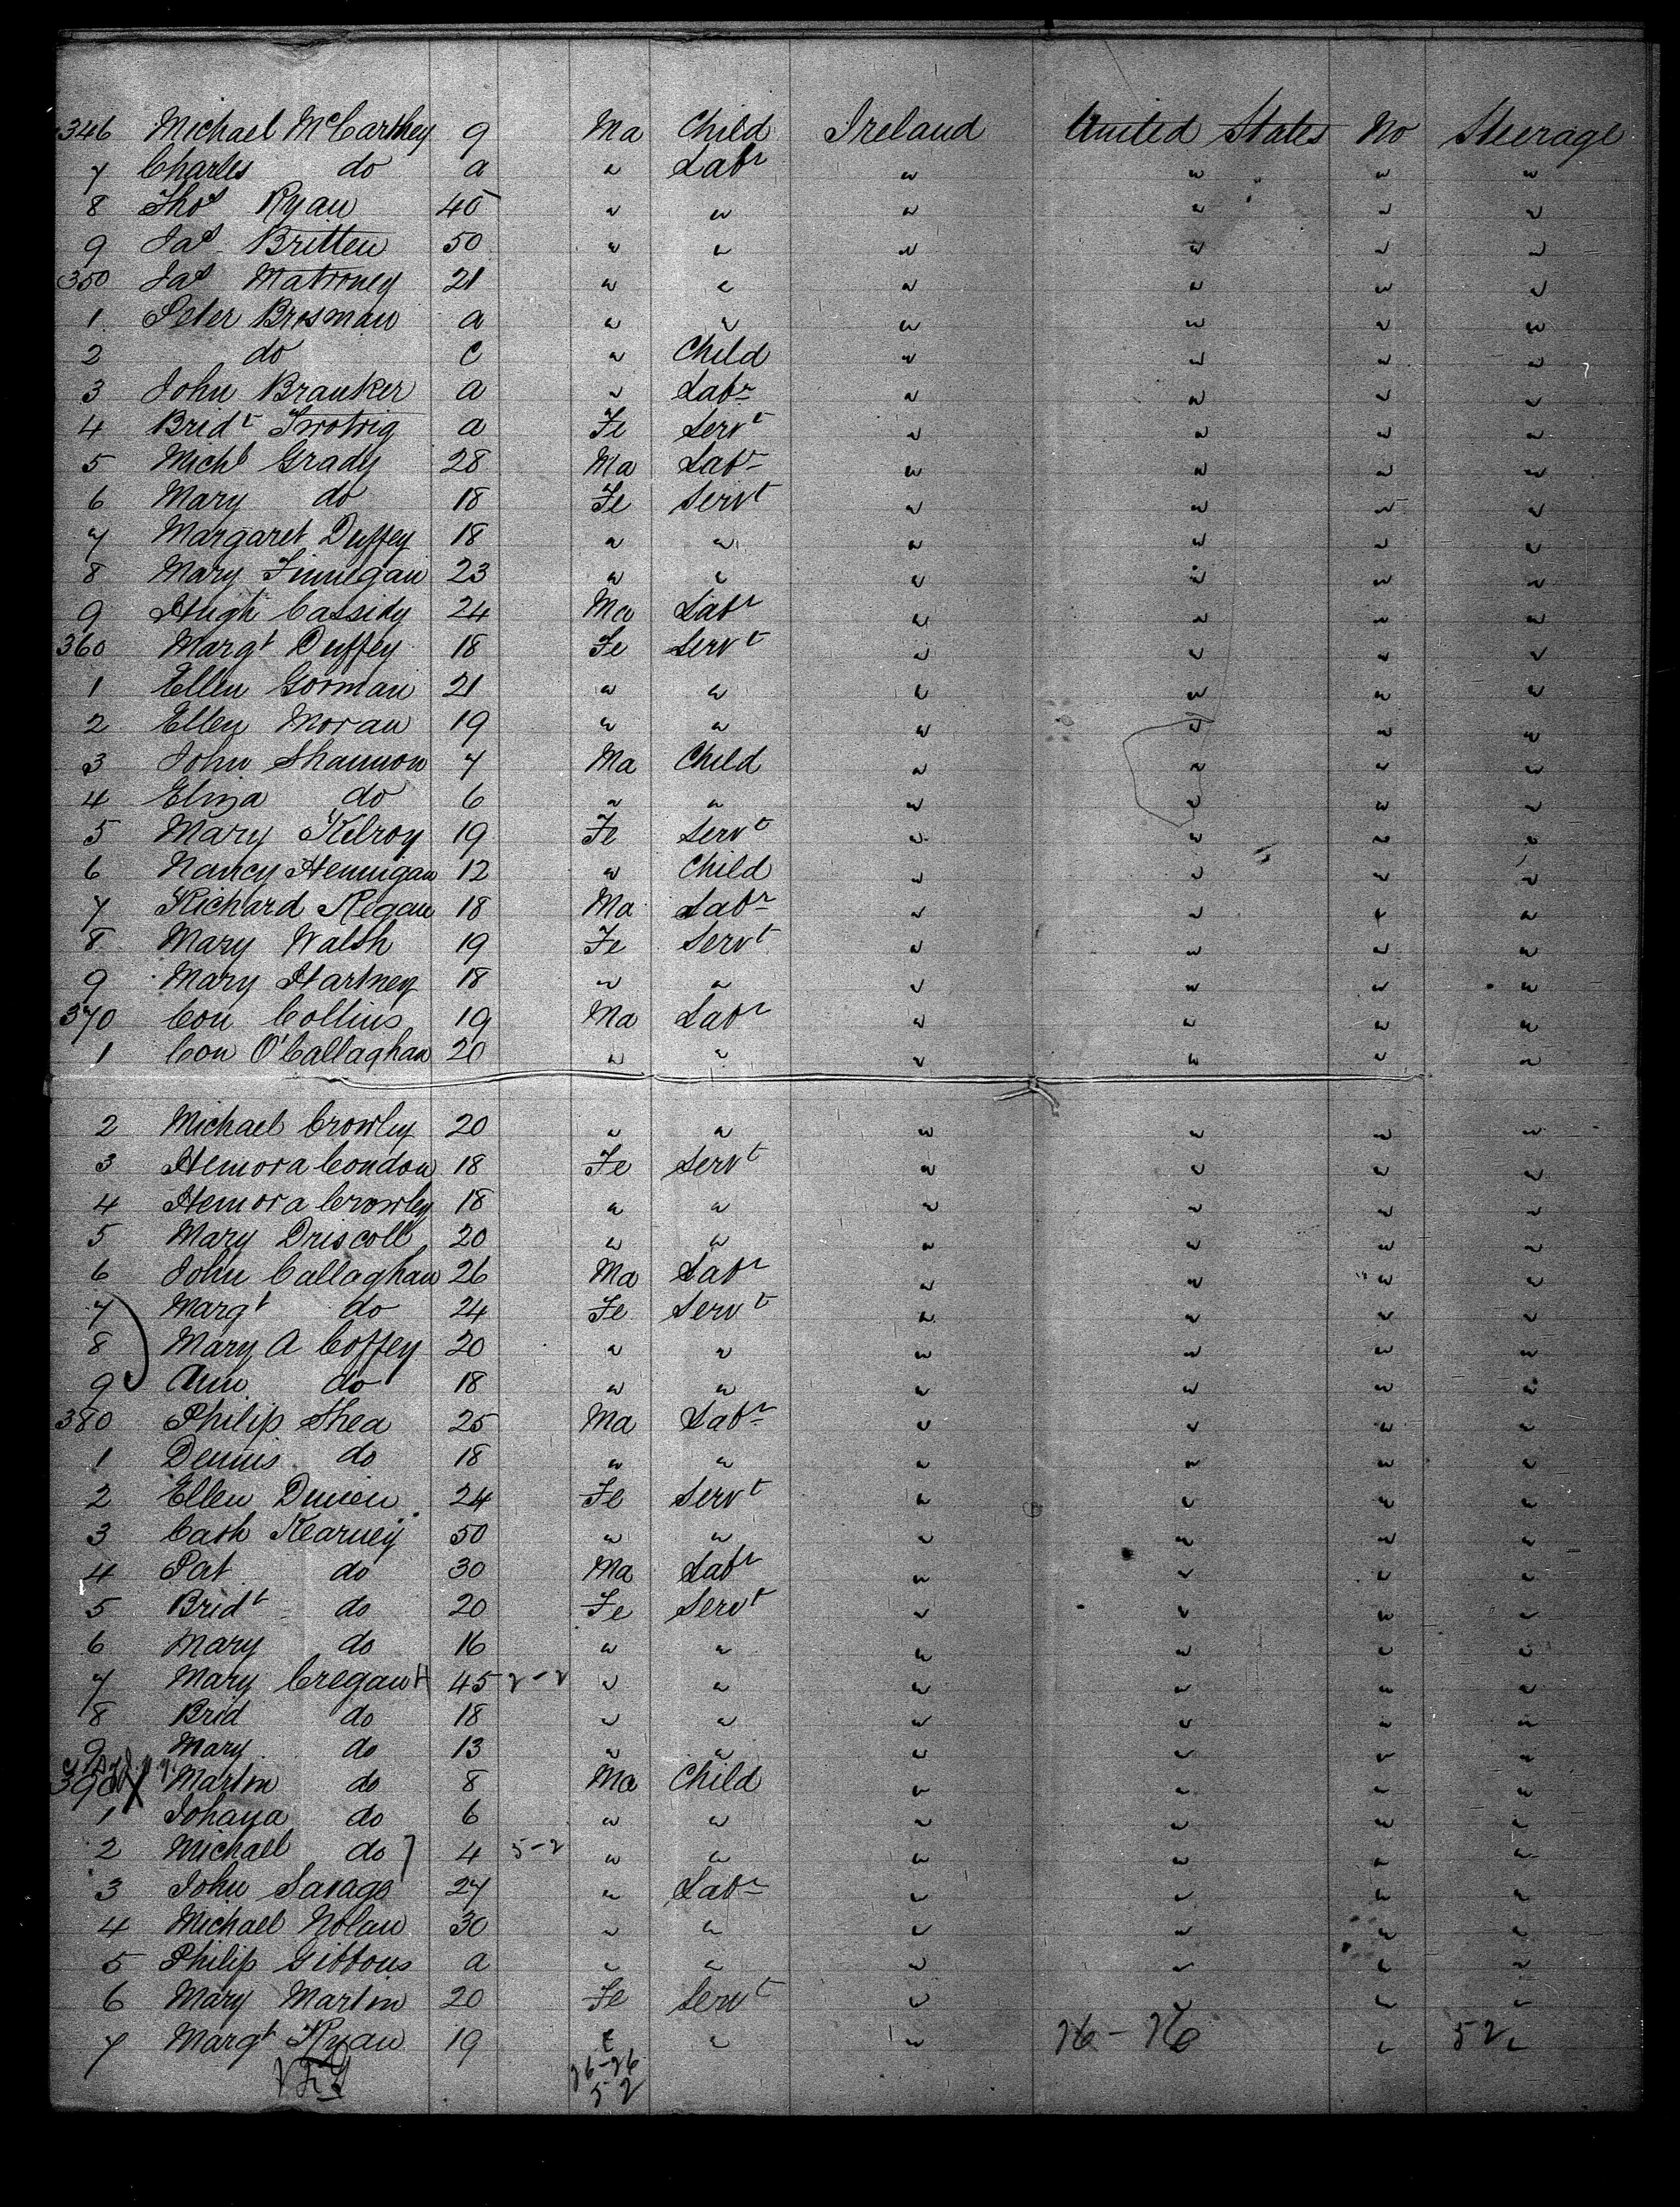 346 Michael McCarthey 9 Ma Child Ireland United States No Steerage
7 Charles do a " Labr " " " "
8 Thos Ryan 40 " " " " " "
9 Jas Britten 50 " " " " " "
350 Jas Matroney 21 " " " " " "
1 Peter Brosman a " " " " " "
2 do c " Child " " " "
3 John Branker a " Labr " " " "
4 Bridt a Fe Servt " " " "
5 Michl Grady 28 Ma Labr " " " "
6 Mary do 18 Fe Servt " " " "
7 Margaret Duffey 18 " " " " " "
8 Mary Finnegan 23 " " " " " "
9 Hugh Cassidy 24 Ma Labr " " " "
360 Margt Duffey 18 Fe Servt " " " "
1 Ellen Gorman 21 " " " " " "
2 Ellen Moran 19 " " " " " "
3 John Shannon 7 Ma Child " " " "
4 Eliza do 6 " " " " " "
5 Mary Kelroy 19 Fe Servt " " " "
6 Nancy Hennigan 12 " Child " " " "
7 Richard Regan 18 Ma Labr " " " "
8 Mary Walsh 19 Fe Servt " " " "
9 Mary Hartney 18 " " " " " "
370 Con Collins 19 Ma Labr " " " "
1 Con O'Callaghan 20 " " " " " "
2 Michael Crowley 20 " " " " " "
3 Henora Condon 18 Fe Servt " " " "
4 Henora Crowley 18 " " " " " "
5 Mary Driscoll 20 " " " " " "
6 John Callaghan 26 Ma Labr " " " "
7 Margt do 24 Fe Servt " " " "
8 Mary A Coffey 20 " " " " " "
9 Ann do 18 " " " " " "
380 Philip Shea 25 Ma Labr " " " "
1 Dennis do 18 " " " " " "
2 Ellen 24 Fe Servt " " " "
3 Cath Kearney 50 " " " " " "
4 Pat do 30 Ma Labr " " " "
5 Bridt do 20 Fe Servt " " " "
6 Mary do 16 " " " " " "
7 Mary Cregan 45 2-2 " " " " " "
8 Brid do 18 " " " " " "
9 Mary do 13 " " " " " "
390 X Martin do 8 Ma Child " " " "
1 Johaya do 6 " " " " " "
2 Michael do 4 5-2 " " " " " "
3 John Savage 27 " Labr " " " "
4 Michael Nolan 30 " " " " " "
5 Philip Gibbons a " " " " " "
6 Mary Martin 20 Fe Servt " " " "
7 Margt Ryan 19 " " " 26-26 " 52 "
26-26
5 2